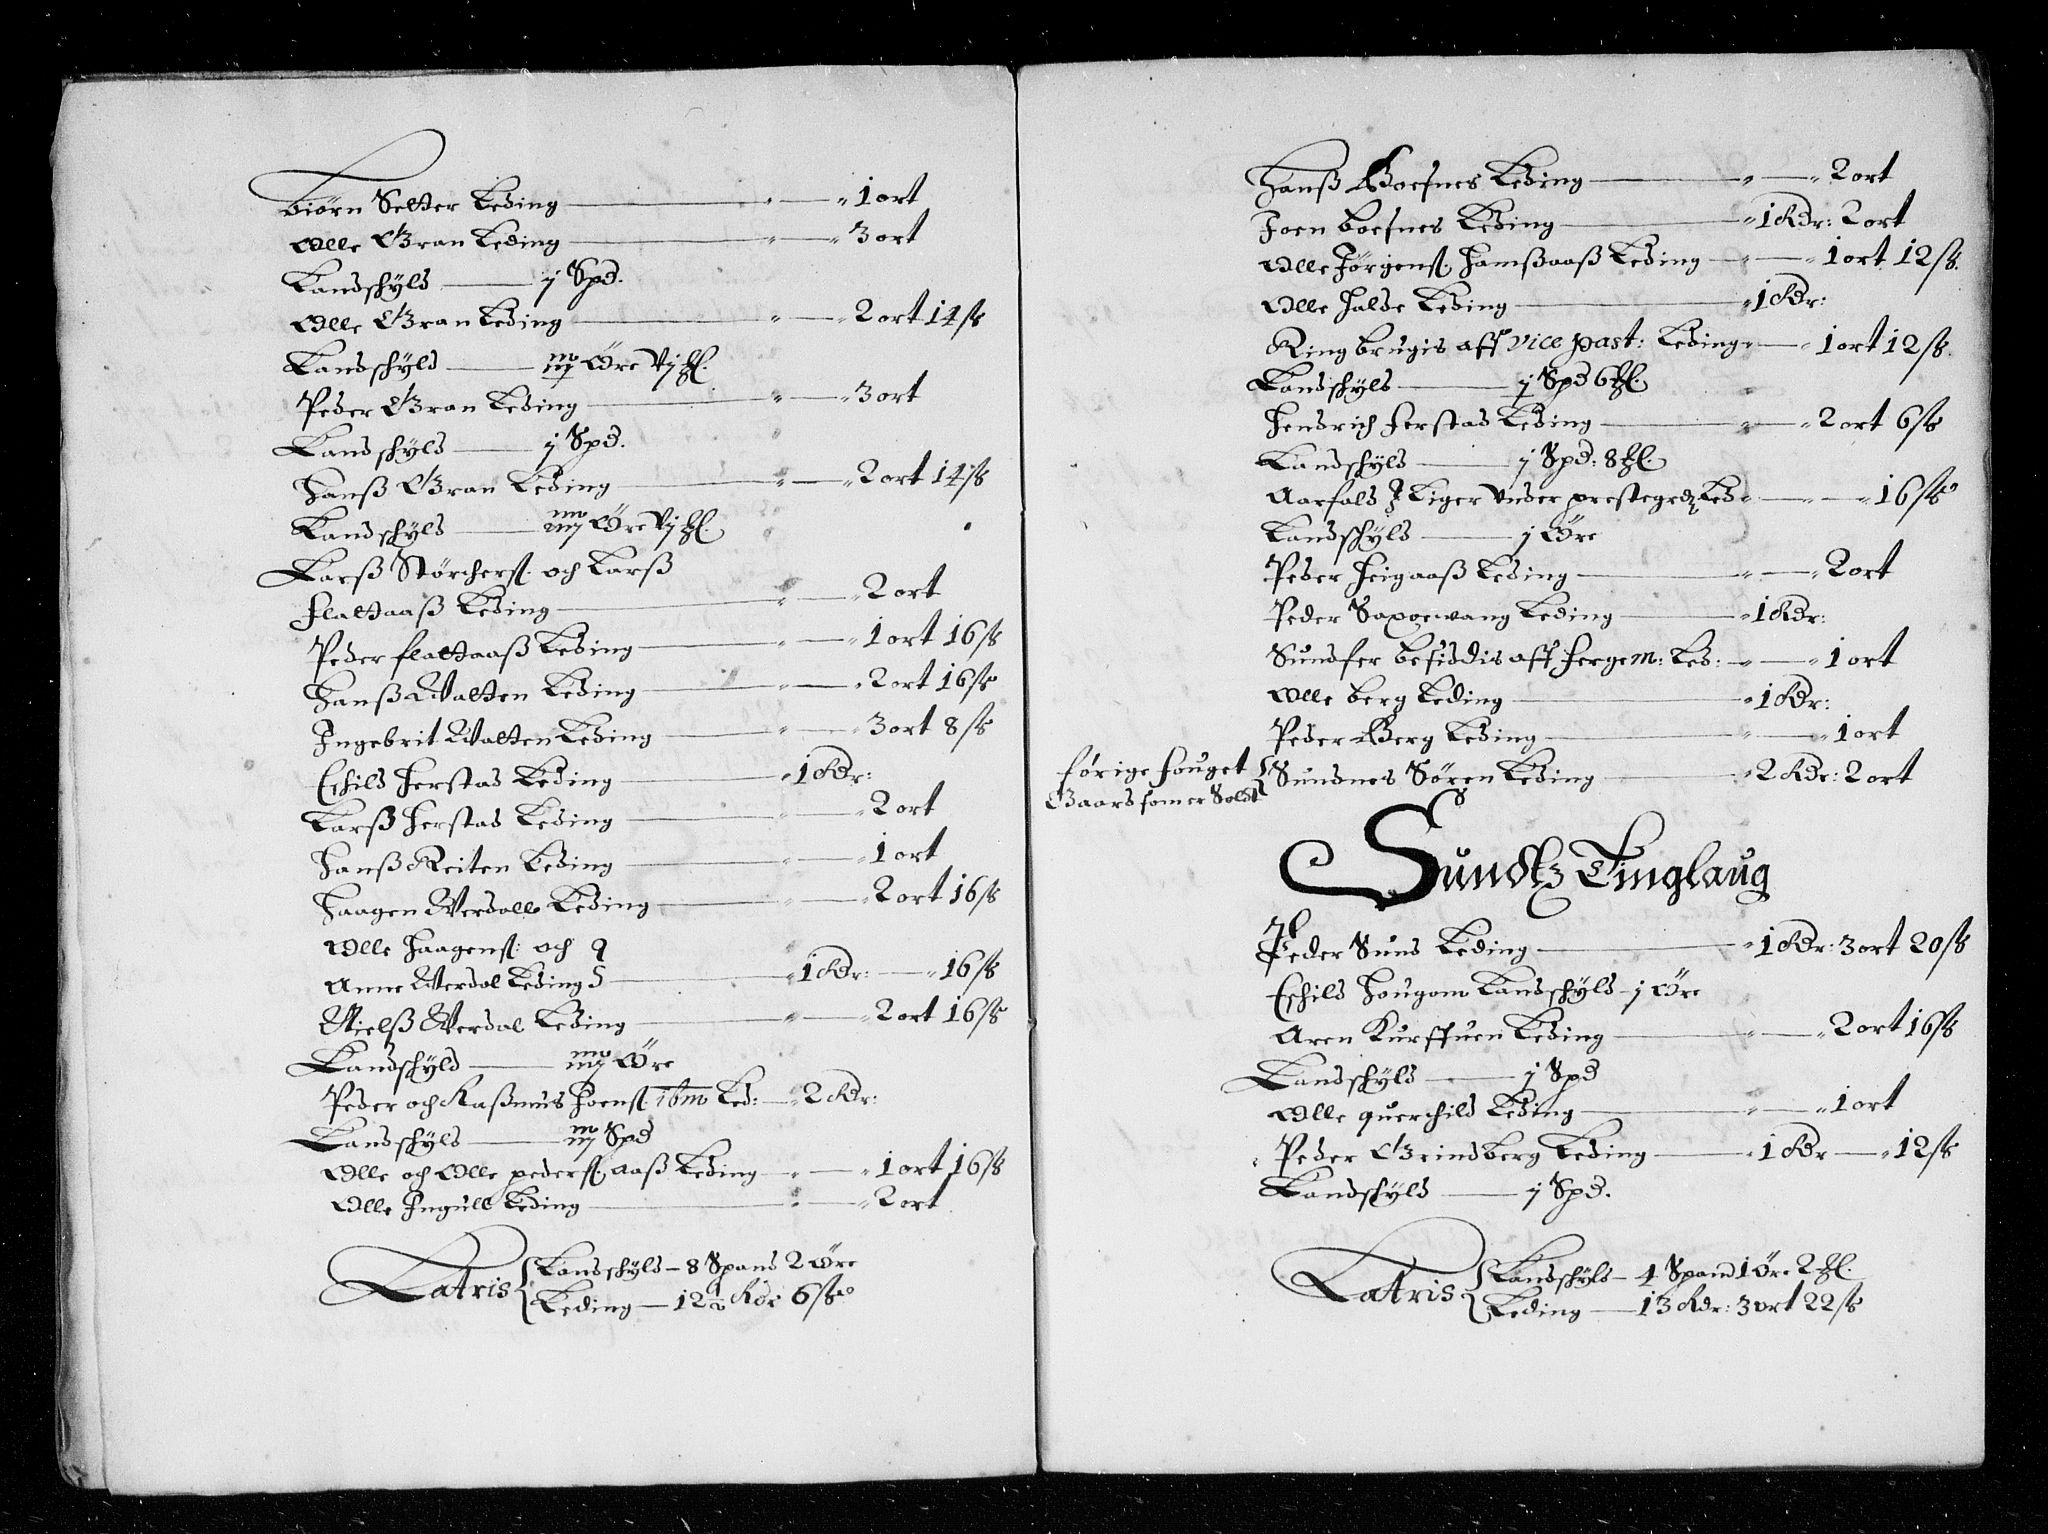 Biörn Setter Leding — „ — „ 1 ort
Olle Gran Leding — „ — „ 3 ort
Landschyld — j Spd.
Olle Gran Leding — „ — „ 2 ort 14 ſß
Landschyld — Öre vj
Peder Gran Leding — „ — „ 3 ort
Landschyld — j Spd.
Hanß Gran Leding — „ — „ 2 ort 14 ſß
Landschyld — Öre vj
Larß Störcherß. och Larß
flattaaß Leding — „ — „ 2 ort
Peder flattaaß Leding — „ — „ 1 ort 16 ſß
Hanß Walten Leding — „ — „ 2 ort 16 ſß
Ingebrit Walten Leding — „ — „ 3 ort 8 ſß
Eschild Herstad Leding — „ 1 Rdr:
Larß Herstad Leding — „ — „ 2 ort
Hanß Reiten Leding — „ — „ 1 ort
Haagen Werdall Leding — „ — „ 2 ort 16 ſß
Olle Haagenſ: och
Anne Werdal Leding — „ 1 Rdr: — „ 16 ſß
Nielß Werdal Leding — „ — „ 2 ort 16 ſß
Landschyld — Öre
Peder och Raßmus Joenſ ibm Led: — „ 2 Rdr:
Landschyld — Spd
Olle och Olle pederſ. aaß Leding — „ — „ 1 ort 16 ſß
Olle Ingull Leding — „ — „ 2 ort
Latris { Landschyld – 8 Spand 2 Öre
Leding — 12 ½ Rdr 6 ſß
Hanß Boesnes Leding — „ — „ 2 ort
Joen boesnes Leding — „ 1 Rdr: 2 ort
Olle Jörgenſ. Hamßaaß Leding — „ — „ 1 ort 12 ſß.
Olle Halde Leding — „ 1 Rdr:
Ring brugis aff vice past: Leding „ — „ 1 ort 12 ſß.
Landschyld — j Spd 6
Hendrich Herstad Leding — „ — „ 2 ort 6 ſß
Landschyld — j Spd: 8
Aarfald Liger under prestegrd Led „ — „ — „ 16 ſß
Landschyld — j Öre
Peder Heigaaß Leding — „ — „ 2 ort
Peder Saxoewang Leding — „ 1 Rdr:
Sundfer besiddis aff fergem: Led: „ — „ 1 ort
Olle berg Leding — „ 1 Rdr:
Peder Berg Leding — „ — „ 1 ort
förige fouget { Sundnes Sören Leding — „ 2 Rdr: 2 ort
Gaard som er Soldt
Sundtz Tinglaug
Peder Sund Leding — „ 1 Rdr: 3 ort 20 ſß
Eschild Hougom Landschyld – j Öre
Aren Kurffuen Leding — „ — „ 2 ort 16 ſß
Landschyld — j Spd
Olle querchild Leding — „ — „ 1 ort
Peder Grindberg Leding — „ 1 Rdr — „ 12 ſß
Landschyld — j Spd.
Latris { Landschyld – 4 Spand 1 Öre 2
Leding — 13 Rdr: 3 ort 22 ſß